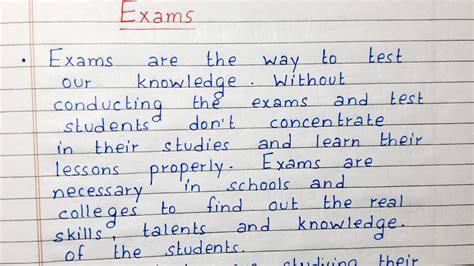 Exams
• Exams are the way to test
our knowledge. Without
conducting the exams and test
students don't concentrate
in their studies and learn their
lessons properly. Exams are
necessary in schools and
colleges to find out the real
skills, talents and knowledge.
of the students.
studying their